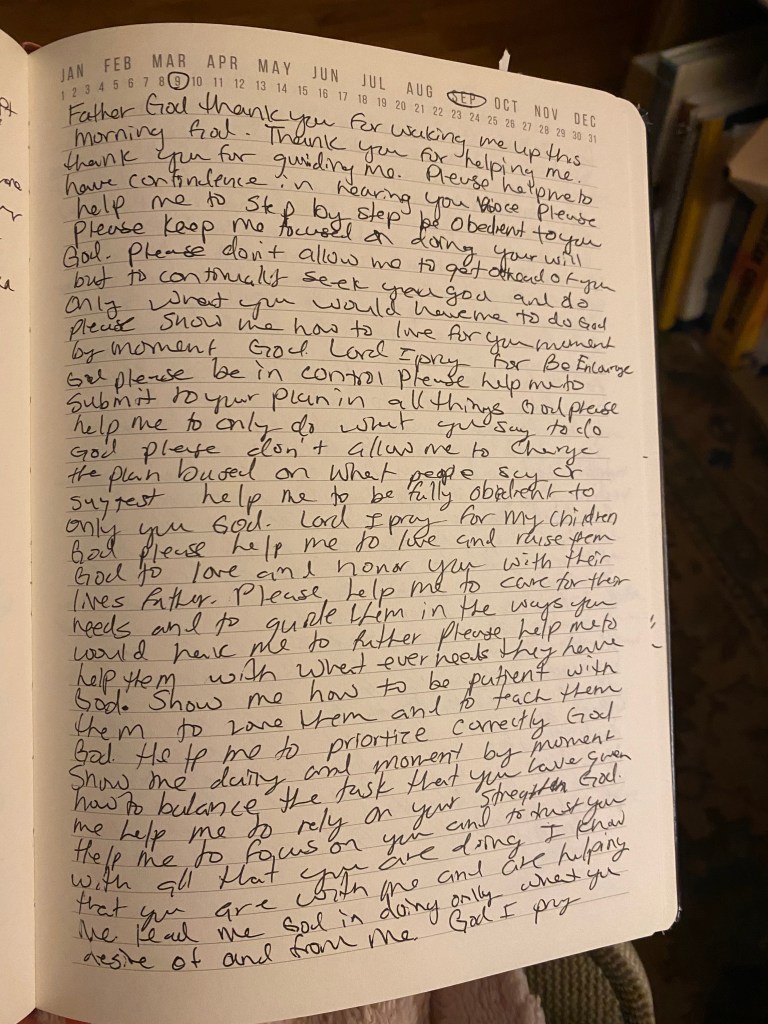 JAN FEB MAR APR MAY JUN JUL AUG SEP OCT NOV DEC
1 2 3 4 5 6 7 8 9 10 11 12 13 14 15 16 17 18 19 20 21 22 23 24 25 26 27 28 29 30 31
Father God thank you for waking me up this
morning God. Thank you for helping me.
thank you for guiding me. Please help me to
have confindence in hearing you Voice Please
help me to step by step be obedient to you
Please keep me focused on doing your will
God. Please don't allow me to get ahead of you
but to continually seek you God and do
only what you would have me to do God
please show me how to live for you moment
by moment God. Lord I pray for Be Encourage
God please be in control Please help me to
submit to your plan in all things God please
help me to only do what you say to do
God please don't allow me to change
the plan based on what people say or
suggest help me to be fully obedient to
only you God. Lord I pray for my children
God please help me to love and raise them
God to love and honor you with their
lives father. Please help me to care for their
needs and to guide them in the ways you
would have me to father Please help me to
help them with what ever needs they have
God. Show me how to be patient with
them to love them and to teach them
God. Help me to prioritize correctly God
Show me daily and moment by moment
how to balance the task that you have given
me help me to rely on your strength God.
Help me to focus on you and to trust you
with all that you are doing I know
that you are with me and are helping
me. Lead me God in doing only what you
desire of and from me. God I pray